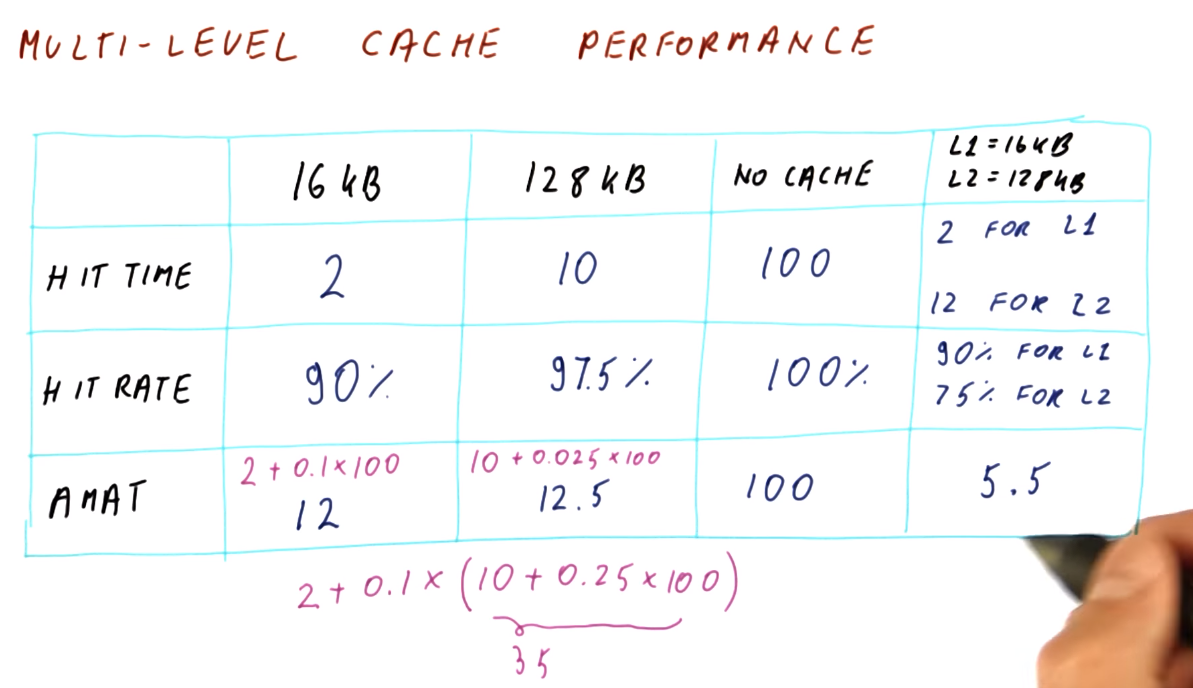 MULTI-LEVEL CACHE PERFORMANCE
16 kB 128 kB NO CACHE L1 = 16 kB
L2 = 128 kB
HIT TIME 2 10 100 2 FOR L1
12 FOR L2
HIT RATE 90% 97.5% 100% 90% FOR L1
75% FOR L2
AMAT 2 + 0.1 × 100 10 + 0.025 × 100
12 12.5 100 5.5
2 + 0.1 × (10 + 0.25 × 100)
35